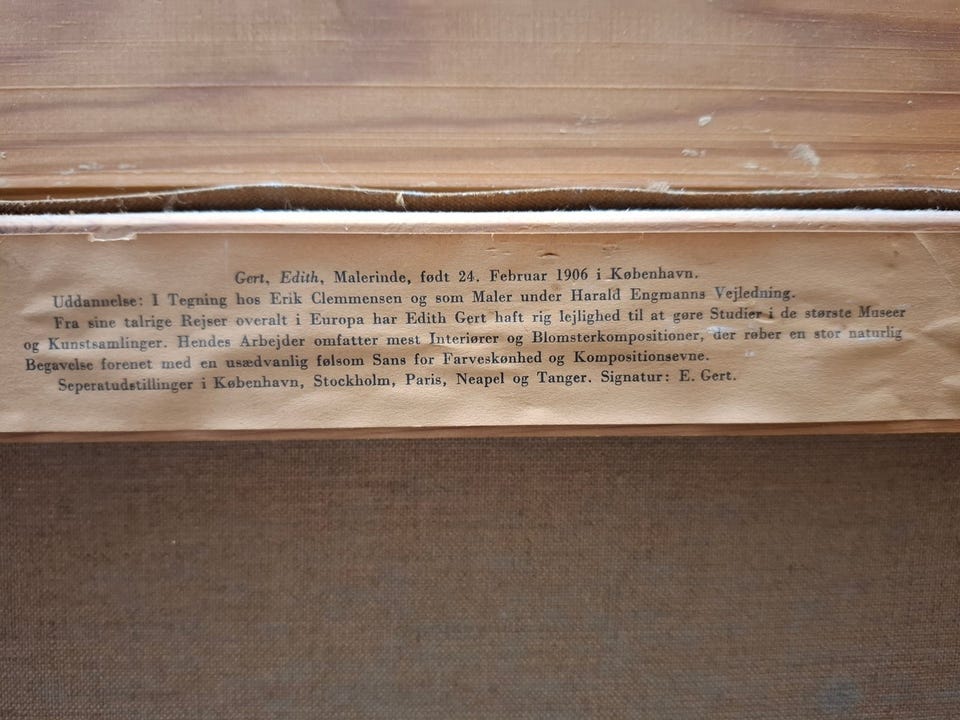 Gert, Edith, Malerinde, født 24. Februar 1906 i København.
Uddannelse: I Tegning hos Erik Clemmensen og som Maler under Harald Engmanns Vejledning.
Fra sine talrige Rejser overalt i Europa har Edith Gert haft rig lejlighed til at gøre Studier i de største Museer
og Kunstsamlinger. Hendes Arbejder omfatter mest Interiører og Blomsterkompositioner, der røber en stor naturlig
Begavelse forenet med en usædvanlig følsom Sans for Farveskønhed og Kompositionsevne.
Seperatudstillinger i København, Stockholm, Paris, Neapel og Tanger. Signatur: E. Gert.